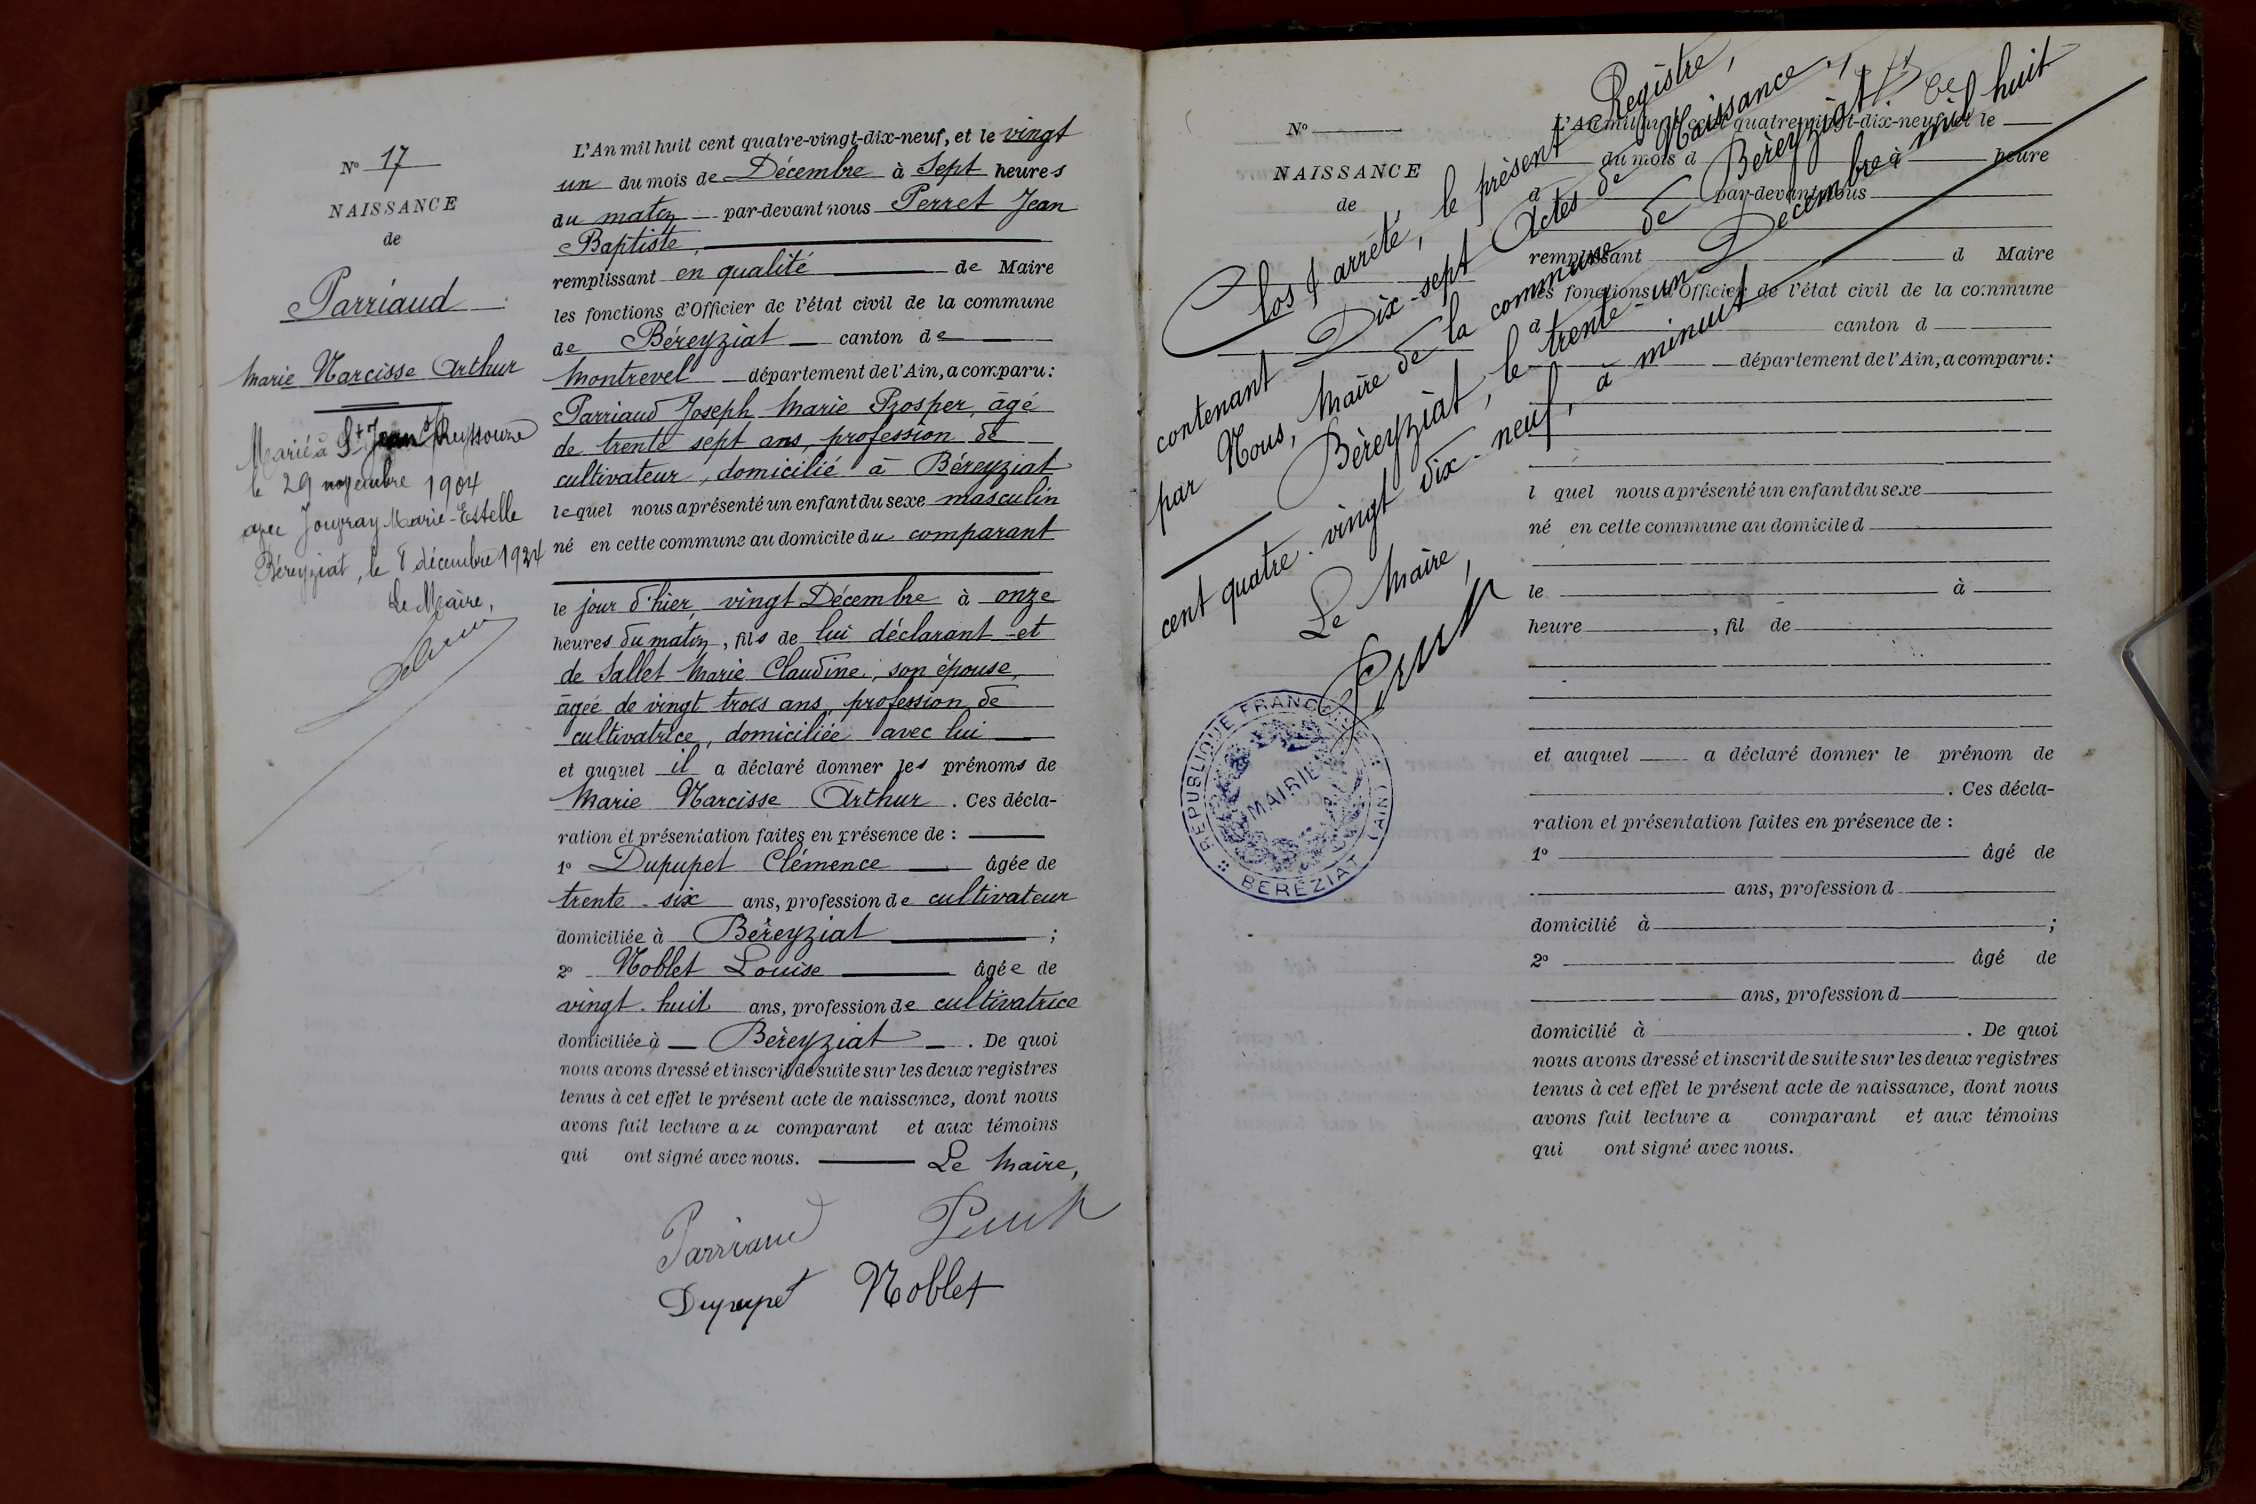 N° 17
NAISSANCE
de
Parriaud
Marie Narcisse Arthur
Marié à St Jean s/Reyssouze
le 29 novembre 1904
avec Jouvray Marie-Estelle
Béreyziat, le 8 décembre 1924
Le Maire,
L'An mil huit cent quatre-vingt-dix-neuf, et le vingt
un du mois de Décembre à Sept heures
du matin par-devant nous Perret Jean
Baptiste,
remplissant en qualité de Maire
les fonctions d'Officier de l'état civil de la commune
de Béreyziat canton de
Montrevel département de l'Ain, a comparu:
Parriaud Joseph Marie Prosper, âgé
de trente sept ans, profession de
cultivateur, domicilié à Béreyziat
lequel nous a présenté un enfant du sexe masculin
né en cette commune au domicile du comparant
le jour d'hier, vingt Décembre à onze
heures du matin, fils de lui déclarant et
de Sallet Marie Claudine, son épouse,
âgée de vingt trois ans, profession de
cultivatrice, domiciliée avec lui
et auquel il a déclaré donner les prénoms de
Marie Narcisse Arthur. Ces décla-
ration et présentation faites en présence de :
1° Dupupet Clémence âgée de
trente-six ans, profession de cultivateur
domiciliée à Béreyziat ;
2° Noblet Louise âgée de
vingt-huit ans, profession de cultivatrice
domiciliée à Béreyziat. De quoi
nous avons dressé et inscrit de suite sur les deux registres
tenus à cet effet le présent acte de naissance, dont nous
avons fait lecture au comparant et aux témoins
qui ont signé avec nous. Le Maire,
Parriaud Perret
Dupupet Noblet
Clos & arrêté, le présent Registre,
contenant Dix-sept Actes de Naissance,
par Nous, Maire de la commune de Béreyziat
Béreyziat, le trente-un Décembre mil huit
cent quatre-vingt dix-neuf, à minuit
Le Maire,
Perret
REPUBLIQUE FRANÇAISE
MAIRIE
BEREZIAT (AIN)
N°
NAISSANCE
de
L'An mil huit cent quatre-vingt-dix-neuf, et le
du mois d à heure
d par-devant nous
remplissant d Maire
les fonctions d'Officier de l'état civil de la commune
d canton d
département de l'Ain, a comparu:
l quel nous a présenté un enfant du sexe
né en cette commune au domicile d
le à
heure , fil de
et auquel a déclaré donner le prénom de
. Ces décla-
ration et présentation faites en présence de :
1° âgé de
ans, profession d
domicilié à ;
2° âgé de
ans, profession d
domicilié à . De quoi
nous avons dressé et inscrit de suite sur les deux registres
tenus à cet effet le présent acte de naissance, dont nous
avons fait lecture a comparant et aux témoins
qui ont signé avec nous.